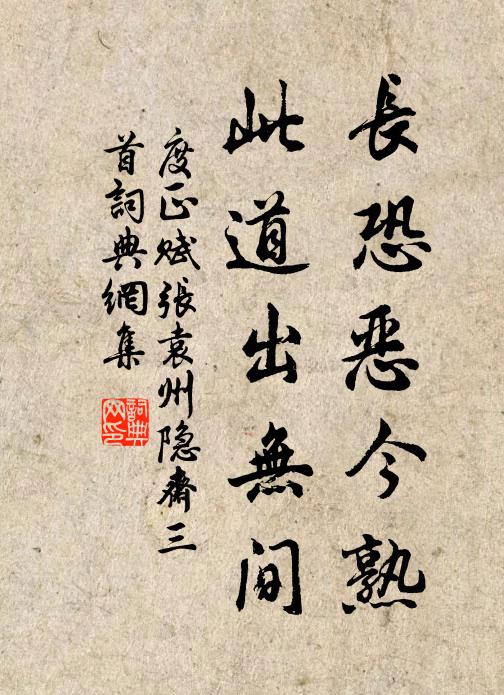 長恐惡今熟
此道出無間
度正賦張袁州隐齋三
首詞典網集
詞典
网印